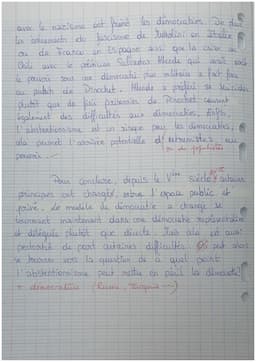 avec le nazisme ont fragilisé les démocraties. De plus
les évènements du fascisme de Mussolini en Italie
ou de Franco en Espagne ainsi que la crise au
Chili avec le président Salvador Allende qui avait
le pouvoir sous une démocratie puis militaire a fait face
au putsch de Pinochet. Allende a préféré se suicider
plutôt que de
également des difficultés aux démocraties. Enfin,
l'abstentionnisme est un risque pour les démocraties,
cela permet l'arrivée potentielle d'extrémistes au
pouvoir.
+ de populistes
Pour conclure, depuis le Vème siècle plusieurs
principes ont changé, entre l'espace public et
privé. Le modèle de démocratie a changé se
tournant maintenant dans une démocratie représentative
et déléguée plutôt que directe. Mais cela
certaines difficultés. On peut alors
se tourner vers la question de à quel point
l'abstentionnisme peut mettre en péril la démocratie?
+ démocratures (Russie, Turquie...)